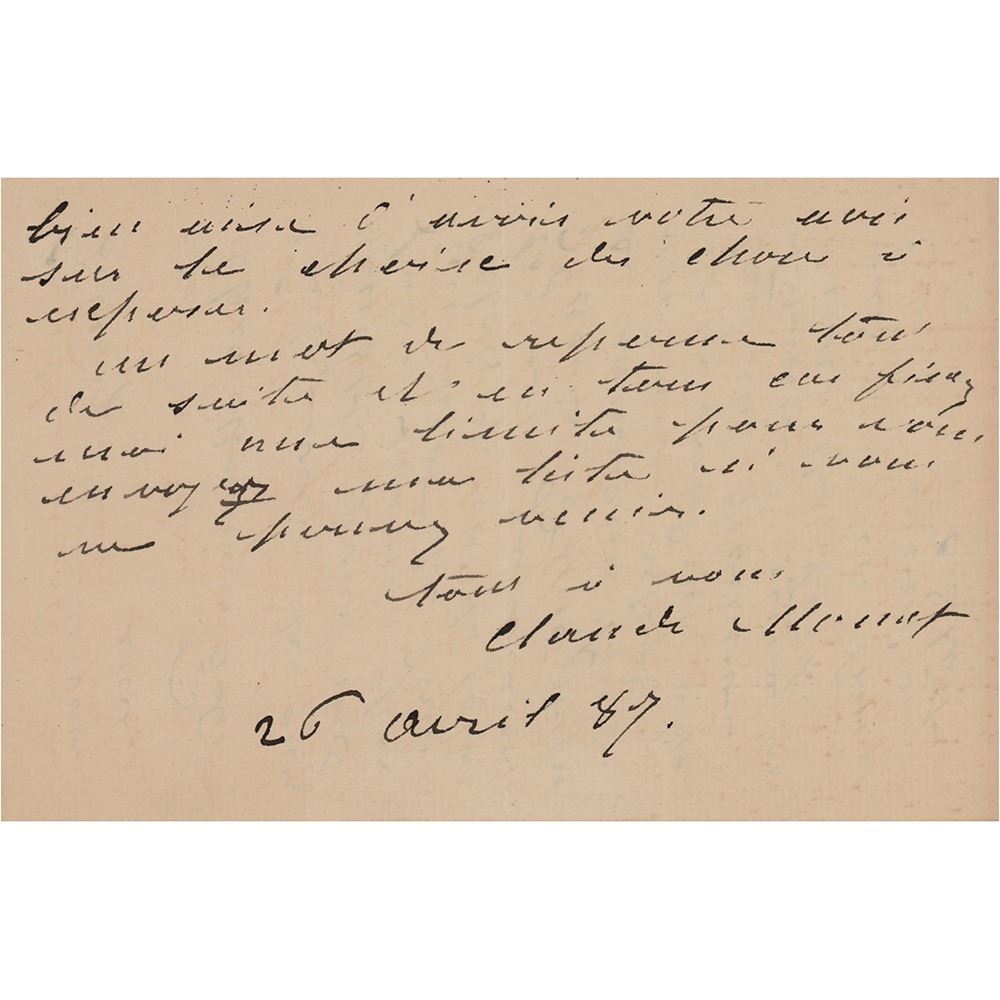 bien aise d'avoir votre avis
sur le choix des choses à
exposer.
un mot de reponse tout
de suite et en tous cas fixez
moi une limite pour vous
envoyer ma liste si vous
ne pouvez venir.
tout à vous
Claude Monet
26 avril 87.